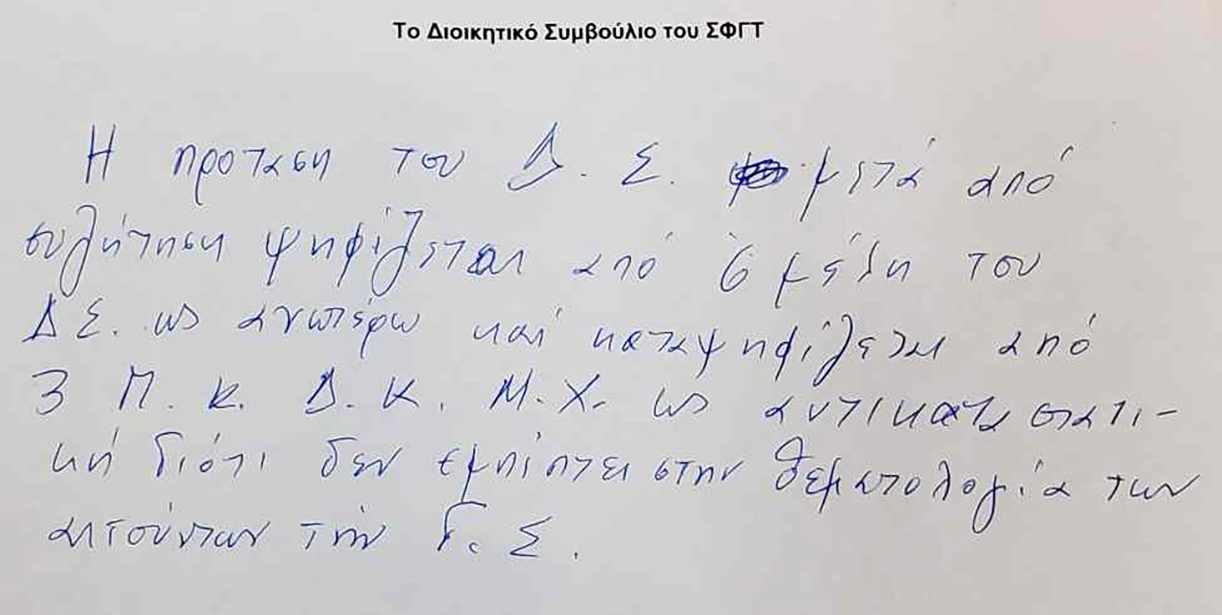 Το Διοικητικό Συμβούλιο του ΣΦΓΤ
Η προταση του Δ. Σ. μετά από
συλήτηση ψηφίζεται από 6 μέλη του
Δ Σ. ως ανωτέρω και καταψηφίζεται από
3 Π. Κ. Δ. Κ. Μ. Χ. ως αντικαταστατι-
κή διότι δεν εμπίπτει στην θεματολογία των
αιτούντων την Γ. Σ.